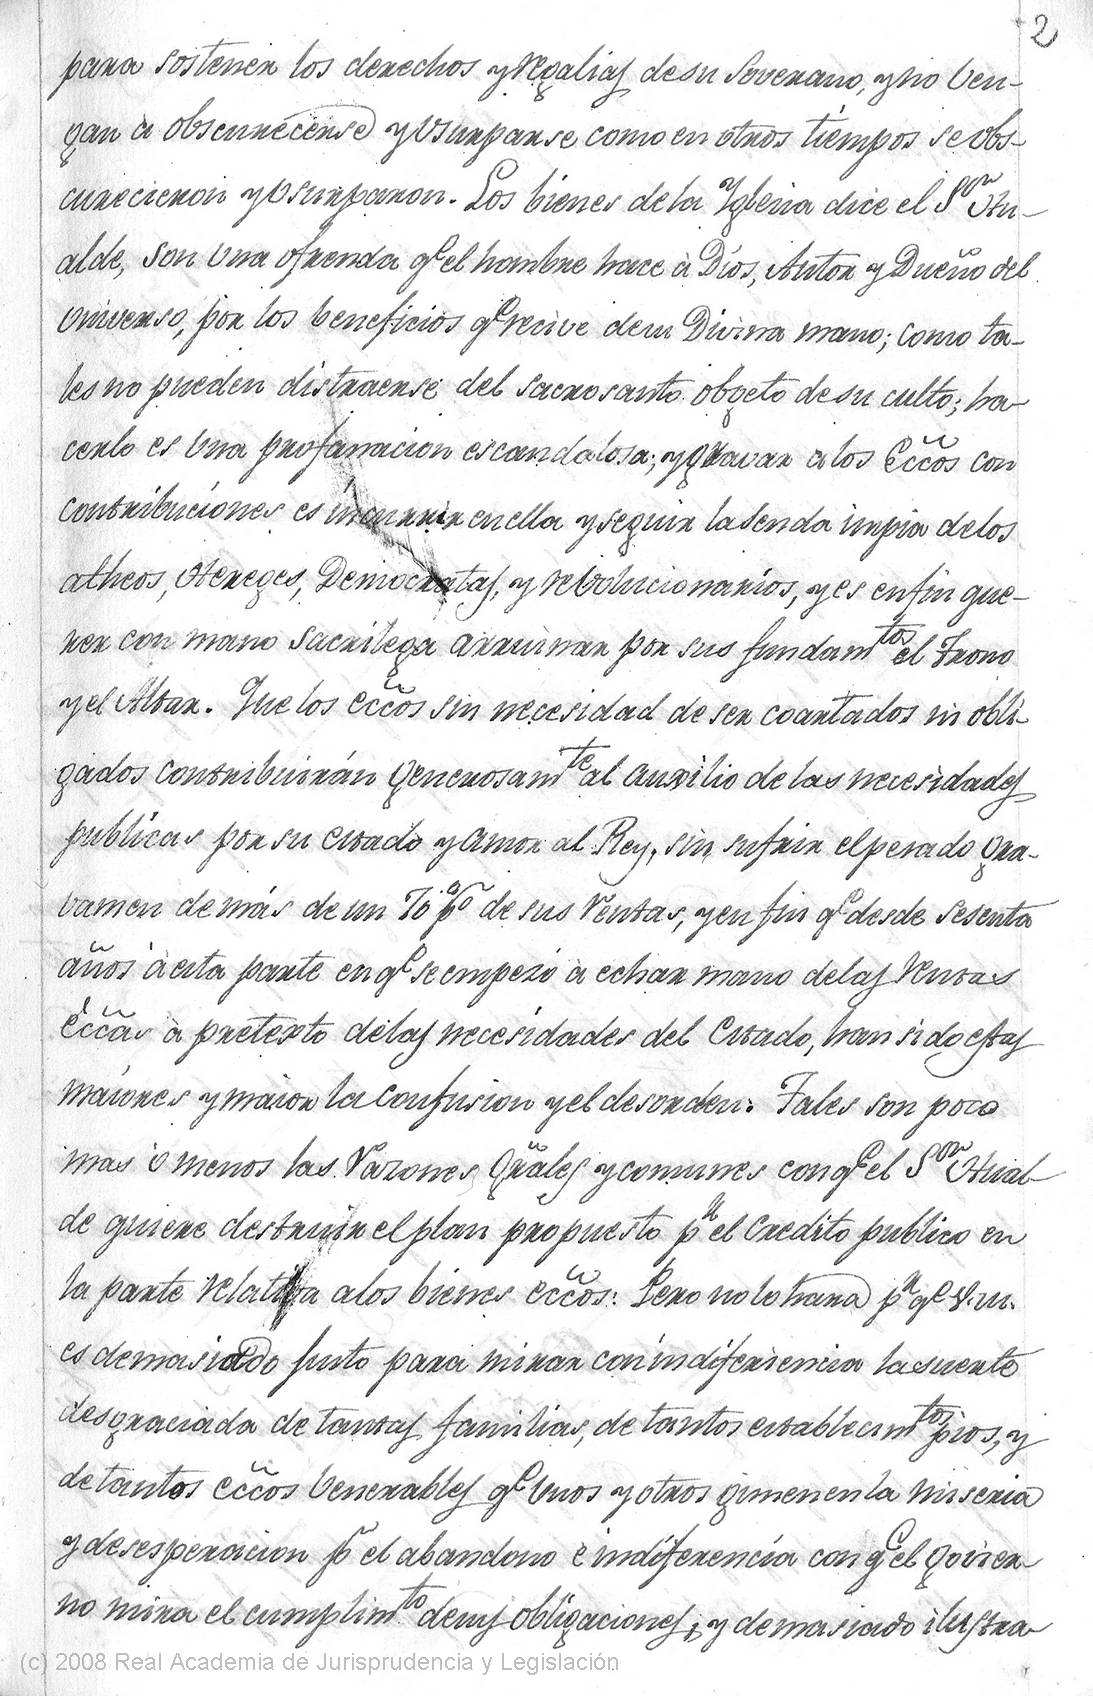 2
para sostener los derechos y regalias de su Soverano, y no ven-
gan à obscurecerse y usurparse como en otros tiempos se obs-
curecieron y usurparon. Los bienes de la Yglesia dice el S.or Ytu-
alde, son una ofrenda q.e el hombre hace à Dios, Autor y Dueño del
universo, por los beneficios q.e recive de su Divina mano; como ta-
les no pueden distraerse del sacrosanto obgeto de su culto; ha-
cerlo es una profanacion escandalosa; y gravar a los Eccôs con
contribuciones es incurrir en ella y seguir la senda impia de los
atheos, Hereges, Democratas, y revolucionarios, y es en fin que-
rer con mano sacrilega arruinar por sus fundam.tos el Trono
y el Altar. Que los eccôs sin necesidad de ser coartados ni obli-
gados contribuirán generosam.te al auxilio de las necesidades
publicas por su estado y amor al Rey, sin sufrir el pesado gra-
vamen de más de un 70 p.o de sus rentas, y en fin q.e desde sesenta
años à esta parte en q.e se empezó à echar mano de las rentas
eccâs à pretexto de las necesidades del Estado, han sido estas
maiores y maior la confusion y el desorden. Tales son poco
mas ò menos las razones grâles y comunes con q.e el S.or Hual-
de quiere destruir el plan propuesto p.r el Credito publico en
la parte relativa a los bienes eccôs: Pero no lo hará p.r q.e V.M.
es demasiado justo para mirar con indiferiencia la suerte
desgraciada de tantas familias, de tantos establecim.tos pios, y
de tantos eccôs venerables q.e unos y otros gimen en la miseria
y desesperacion p.r el abandono è indiferencia con q.e el govier-
no mira el cumplim.to de sus obligaciones; y demasiado ilustra-
(c) 2008 Real Academia de Jurisprudencia y Legislación